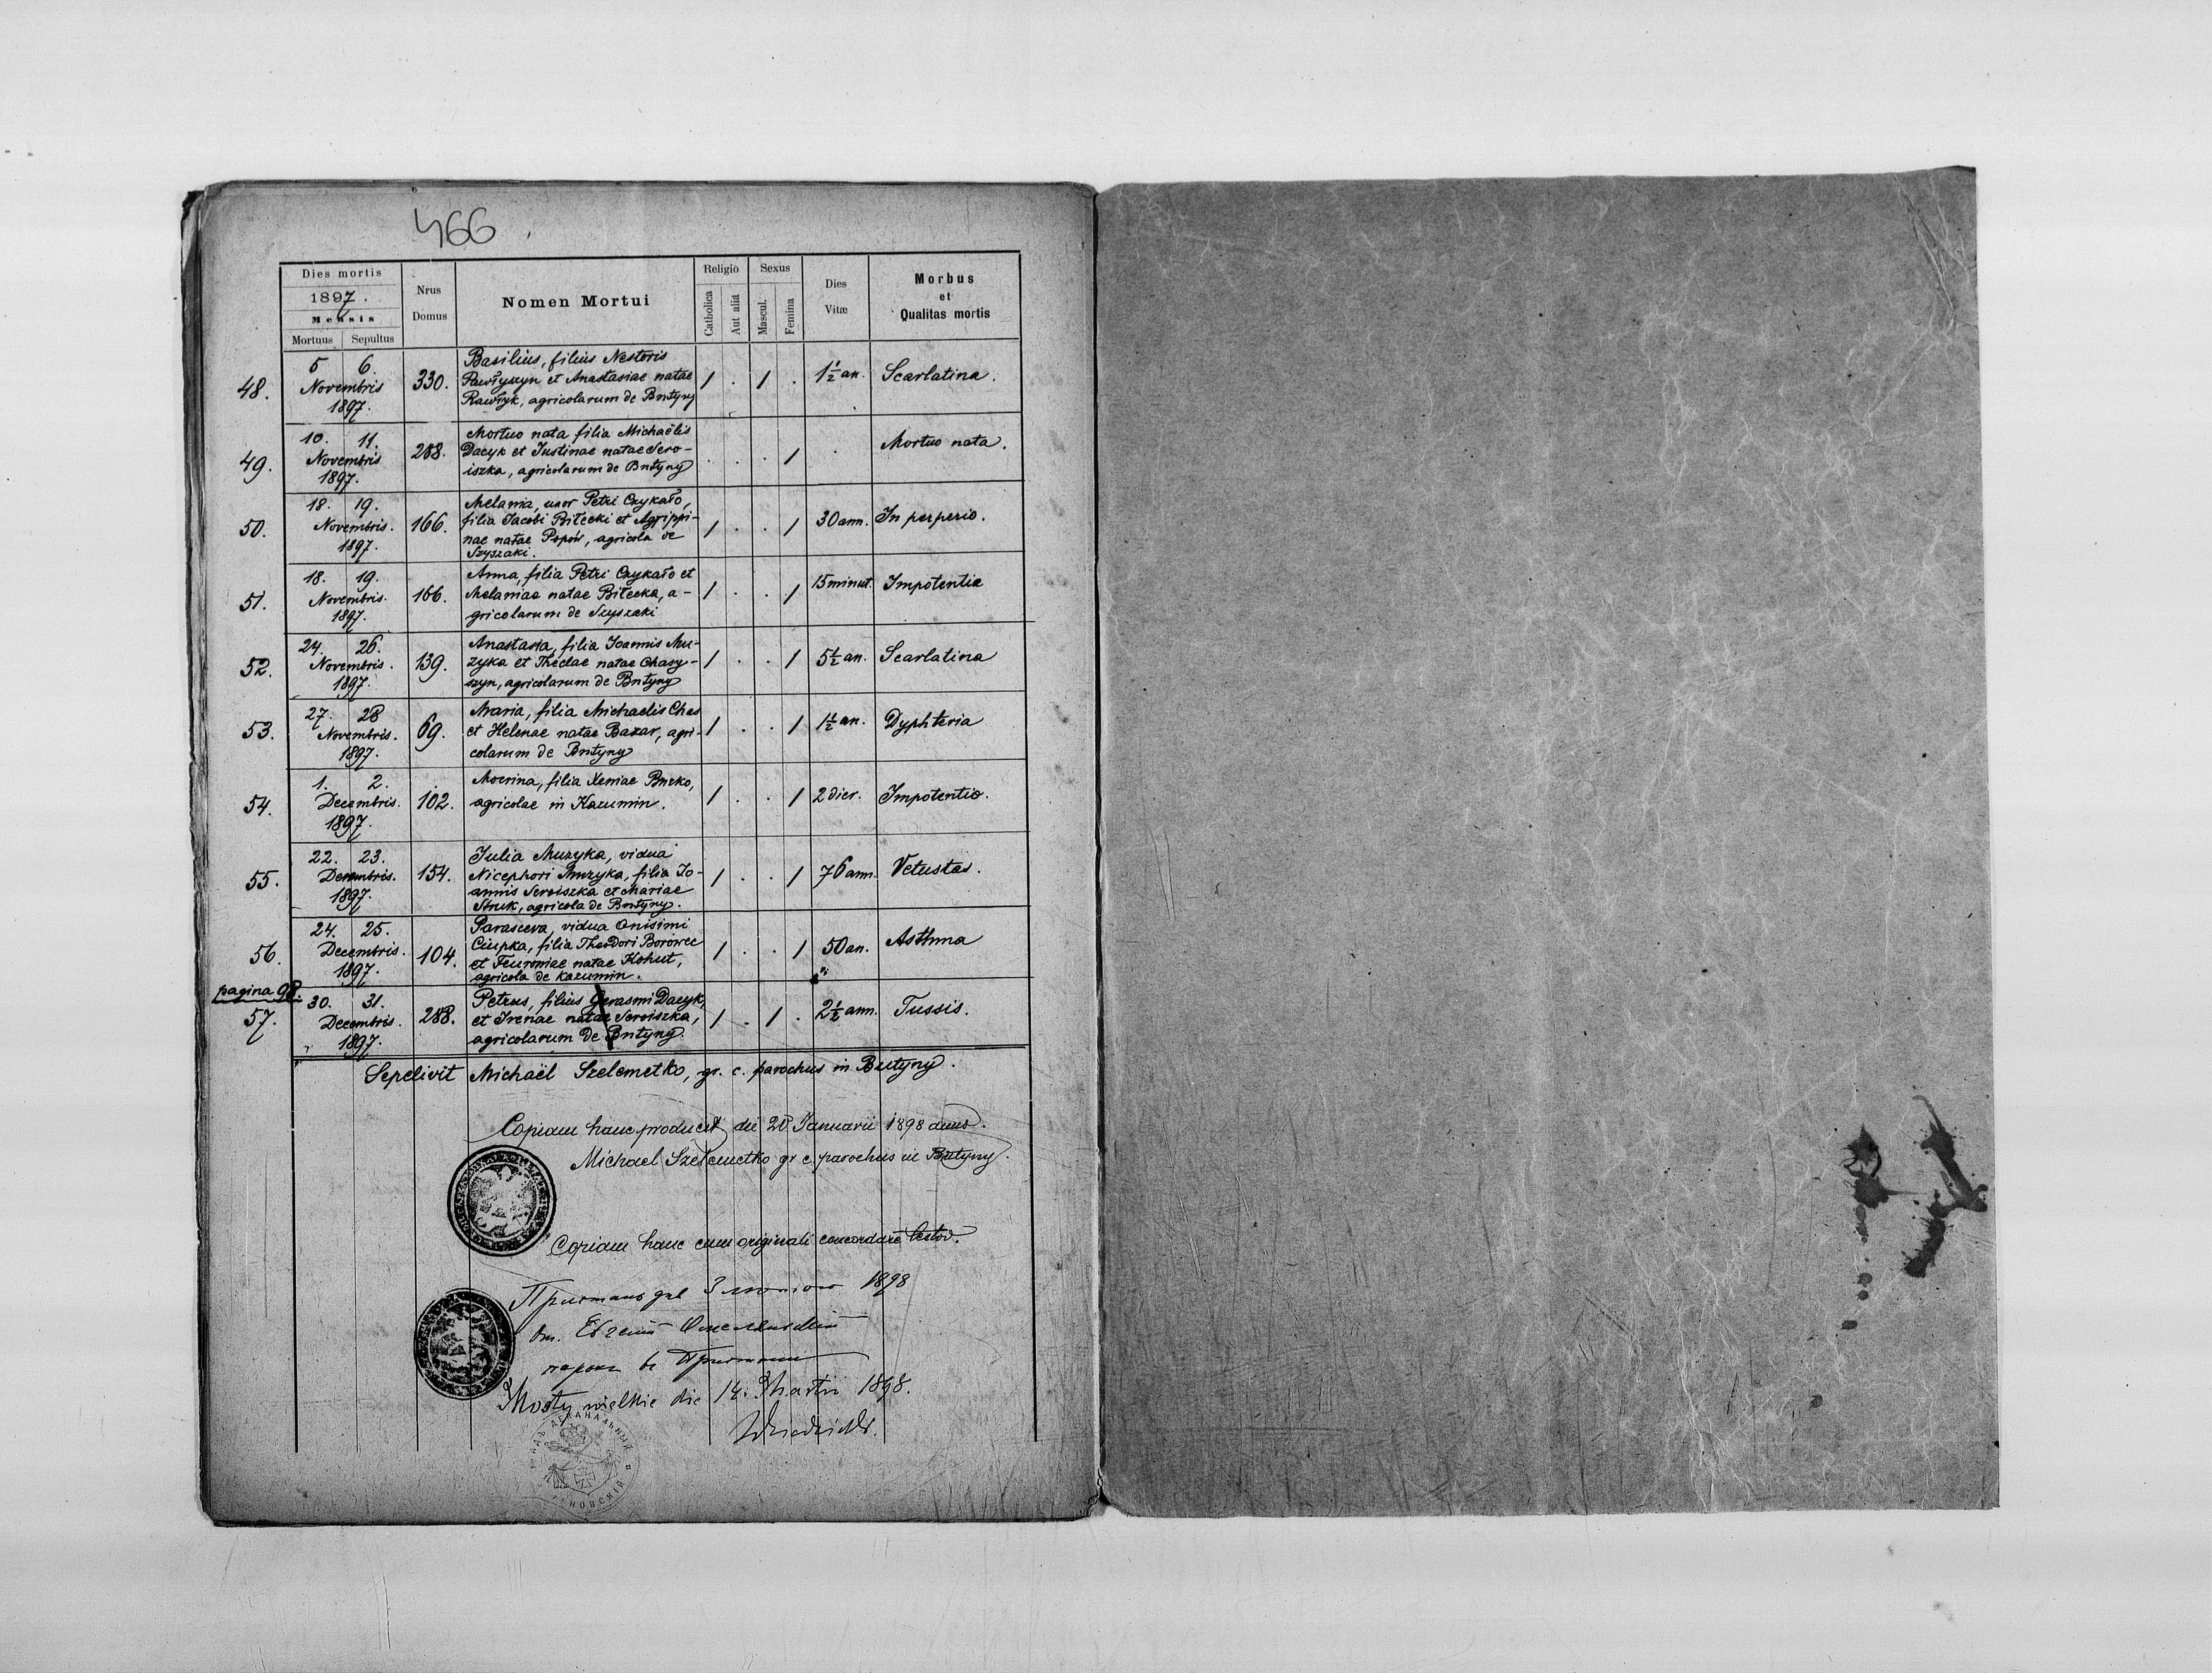 466
Dies mortis
1897.
Mensis
Mortuus Sepultus
Nrus
Domus
Nomen Mortui
Religio
Catholica
Aut alia
Sexus
Mascul.
Femina
Dies
Vitæ
Morbus
et
Qualitas mortis
48.
5 6.
Novembris
1897.
330.
Basilius, filius Nestoris
Pawłyszyn et Anastasiae natae
Rawłyk, agricolarum de Butyny
1 . 1 .
1½ an.
Scarlatina.
49.
10. 11.
Novembris
1897.
288.
Mortuo nata filia Michaëlis
Dacyk et Justinae natae Sero-
iszka, agricolarum de Butyny
. . . 1
.
Mortuo nata.
50.
18. 19.
Novembris.
1897.
166.
Melania, uxor Petri Czykało,
filia Jacobi Biłecki et Agrippi-
nae natae Popów, agricola de
Szyszaki.
1 . . 1
30 ann.
In perperio.
51.
18. 19.
Novembris.
1897.
166.
Anna, filia Petri Czykało et
Melaniae natae Biłecka, a-
gricolarum de Szyszaki
1 . . 1
15 minut.
Impotentia
52.
24. 26.
Novembris.
1897.
139.
Anastasia, filia Joannis Mu-
zyka et Theclae natae Chary-
szyn, agricolarum de Butyny
1 . . 1
5½ an.
Scarlatina
53.
27. 28
Novembris.
1897.
69.
Maria, filia Michaelis Ches
et Helenae natae Bazar, agri-
colarum de Butyny
1 . . 1
1½ an.
Dyphteria
54.
1. 2.
Decembris.
1897.
102.
Mocrina, filia Xeniae Bucko,
agricolae in Kazumin.
1 . . 1
2 dier.
Impotentia.
55.
22. 23.
Decembris.
1897.
154.
Julia Muzyka, vidua
Nicephori Muzyka, filia Jo-
annis Seroiszka et Mariae
Struk, agricola de Butyny.
1 . . 1
76 ann.
Vetustas.
56.
24. 25.
Decembris.
1897.
104.
Parasceva, vidua Onisimi
Ciupka, filia Theodori Borowec
et Feuroniae natae Kohut,
agricola de Kazumin.
1 . . 1
50 an.
Asthma
pagina 98.
57.
30. 31.
Decembris.
1897.
288.
Petrus, filius Gerasmi Dacyk,
et Irenae natae Seroiszka,
agricolarum de Butyny.
1 . 1 .
2½ ann.
Tussis.
Sepelivit Michaël Szelemetko, gr. c. parochus in Butyny.
Copiam hanc producit die 20 Januarii 1898
Michael Szelemetko gr c. parochus in Butyny.
Copiam hanc cum originali concordare testor.
Пристань дня 3 1898
От. Евгений
парох в Пристани
Mosty wielkie die 14. Martii 1898.